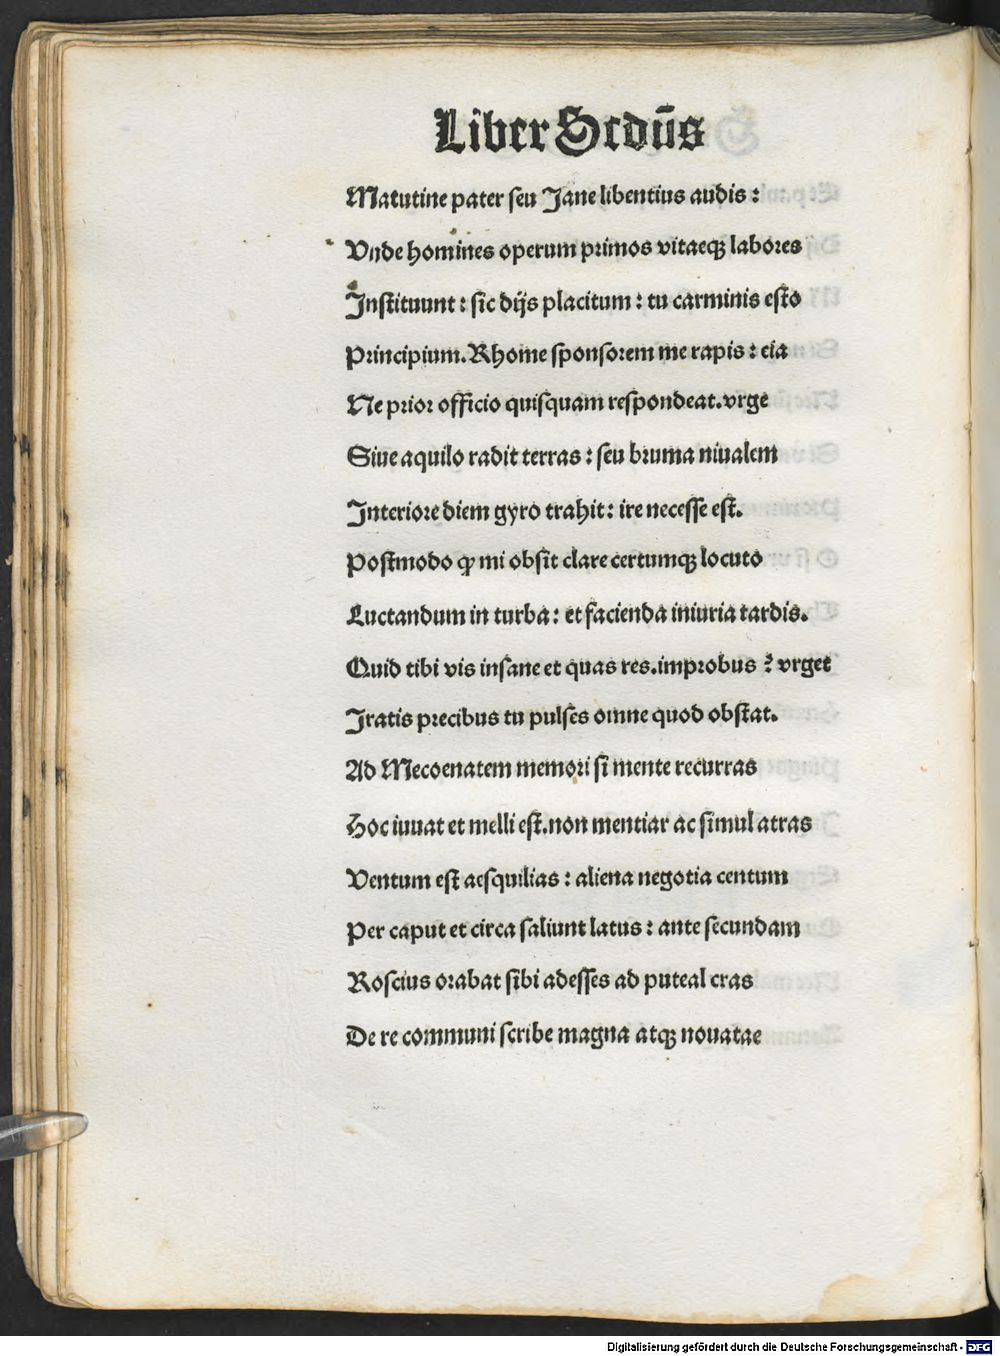 Liber Scdũs
Matutine pater seu Jane libentius audis :
Vnde homines operum primos vitaeqꝫ labores
Instituunt : sic dijs placitum : tu carminis esto
Principium. Rhome sponsorem me rapis : eia
Ne prior officio quisquam respondeat. vrge
Siue aquilo radit terras : seu bruma niualem
Interiore diem gyro trahit : ire necesse est.
Postmodo ꝙ mi obsit clare certumqꝫ locuto
Luctandum in turba : et facienda iniuria tardis.
Quid tibi vis insane et quas res. improbus ? vrget
Iratis precibus tu pulses omne quod obstat.
Ad Mecoenatem memori si mente recurras
Hoc iuuat et melli est. non mentiar ac simul atras
Ventum est aesquilias : aliena negotia centum
Per caput et circa saliunt latus : ante secundam
Roscius orabat sibi adesses ad puteal cras
De re communi scribe magna atqꝫ nouatae
Digitalisierung gefördert durch die Deutsche Forschungsgemeinschaft - DFG